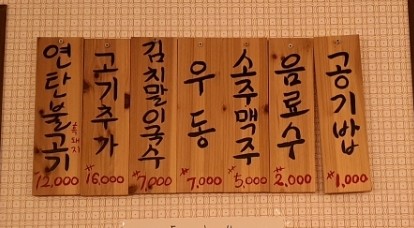 연탄불고기
흑돼지
12,000
고기추가
₩16,000
김치말이국수
₩7,000
우동
₩7,000
소주맥주
₩5,000
음료수
₩2,000
공기밥
₩1,000